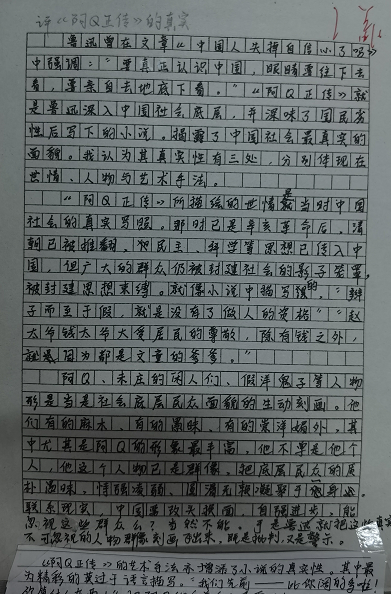 评《阿Q正传》的真实
鲁迅曾在文章《中国人失掉自信心了吗》
中强调："要真正认识中国，眼睛要往下去
看，要亲自去地底下看。"《阿Q正传》就
是鲁迅深入中国社会底层，并深味了国民劣
性后写下的小说。揭露了中国社会最真实的
面貌。我认为其真实性有三处，分别体现在
世情、人物与艺术手法。
《阿Q正传》所描绘的世情是当时中国
社会的真实写照。那时已是辛亥革命后，清
朝已被推翻，民主、科学等思想已传入中
国，但广大的群众仍被封建社会的影子笼罩，
被封建思想束缚。就像小说中描写的："辫
子而至于假，就是没有了做人的资格""赵
太爷钱太爷大受居民的尊敬，除有钱之外，
就因为都是文童的爹爹。"
阿Q、未庄的闲人们、假洋鬼子等人物
形是当是社会底层民众面貌的生动刻画。他
们有的麻木、有的愚昧、有的崇洋媚外。其
中尤其是阿Q的形象最丰富。他不单是他个
人，他这个人物已是群像，把底层民众的质
朴愚昧，恃强凌弱、圆滑无赖凝聚于一身。
联系现实，中国要改头换面，自强进步，能
忽视这些群众么？当然不能。于是鲁迅就把这些真实
不可忽视的人物群像刻画了出来，既是批判，又是警示。
《阿Q正传》的艺术手法亦增添了小说的真实性。其中最
为精彩的莫过于语言描写。"我们先前——比你阔的多啦！